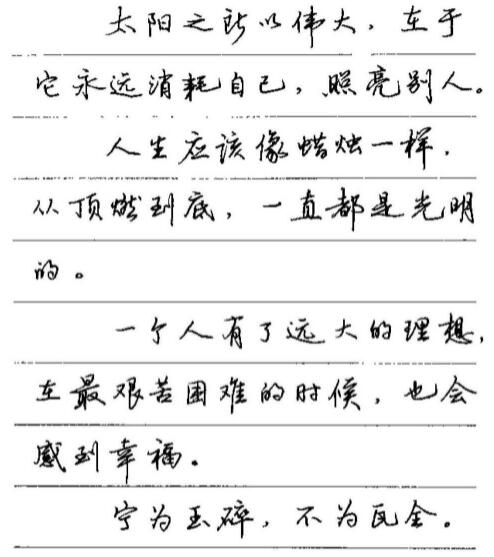 太阳之所以伟大，在于
它永远消耗自己，照亮别人。
人生应该像蜡烛一样，
从顶燃到底，一直都是光明
的。
一个人有了远大的理想，
在最艰苦困难的时候，也会
感到幸福。
宁为玉碎，不为瓦全。